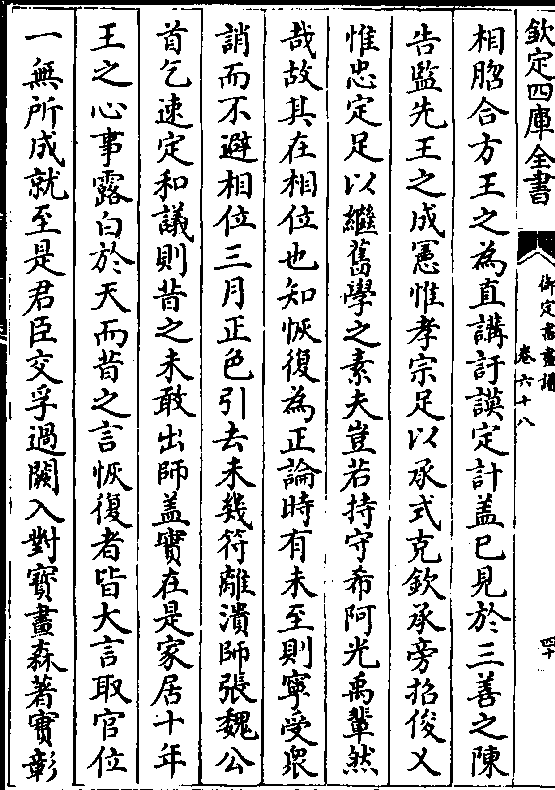 欽定四庫全書
御定書畫譜
卷六十八
四十
相脗合方王之為直講訏謨定計盖已見於三善之陳
告監先王之成憲惟孝宗足以承式克欽承旁招俊乂
惟忠定足以繼舊學之素夫豈若持守希阿光禹輩然
哉故其在相位也知恢復為正論時有未至則寧受衆
誚而不避相位三月正色引去未幾符離潰師張魏公
首乞速定和議則昔之未敢出師盖實在是家居十年
王之心事露白於天而昔之言恢復者皆大言取官位
一無所成就至是君臣交孚過闕入對寶畫森著實彰